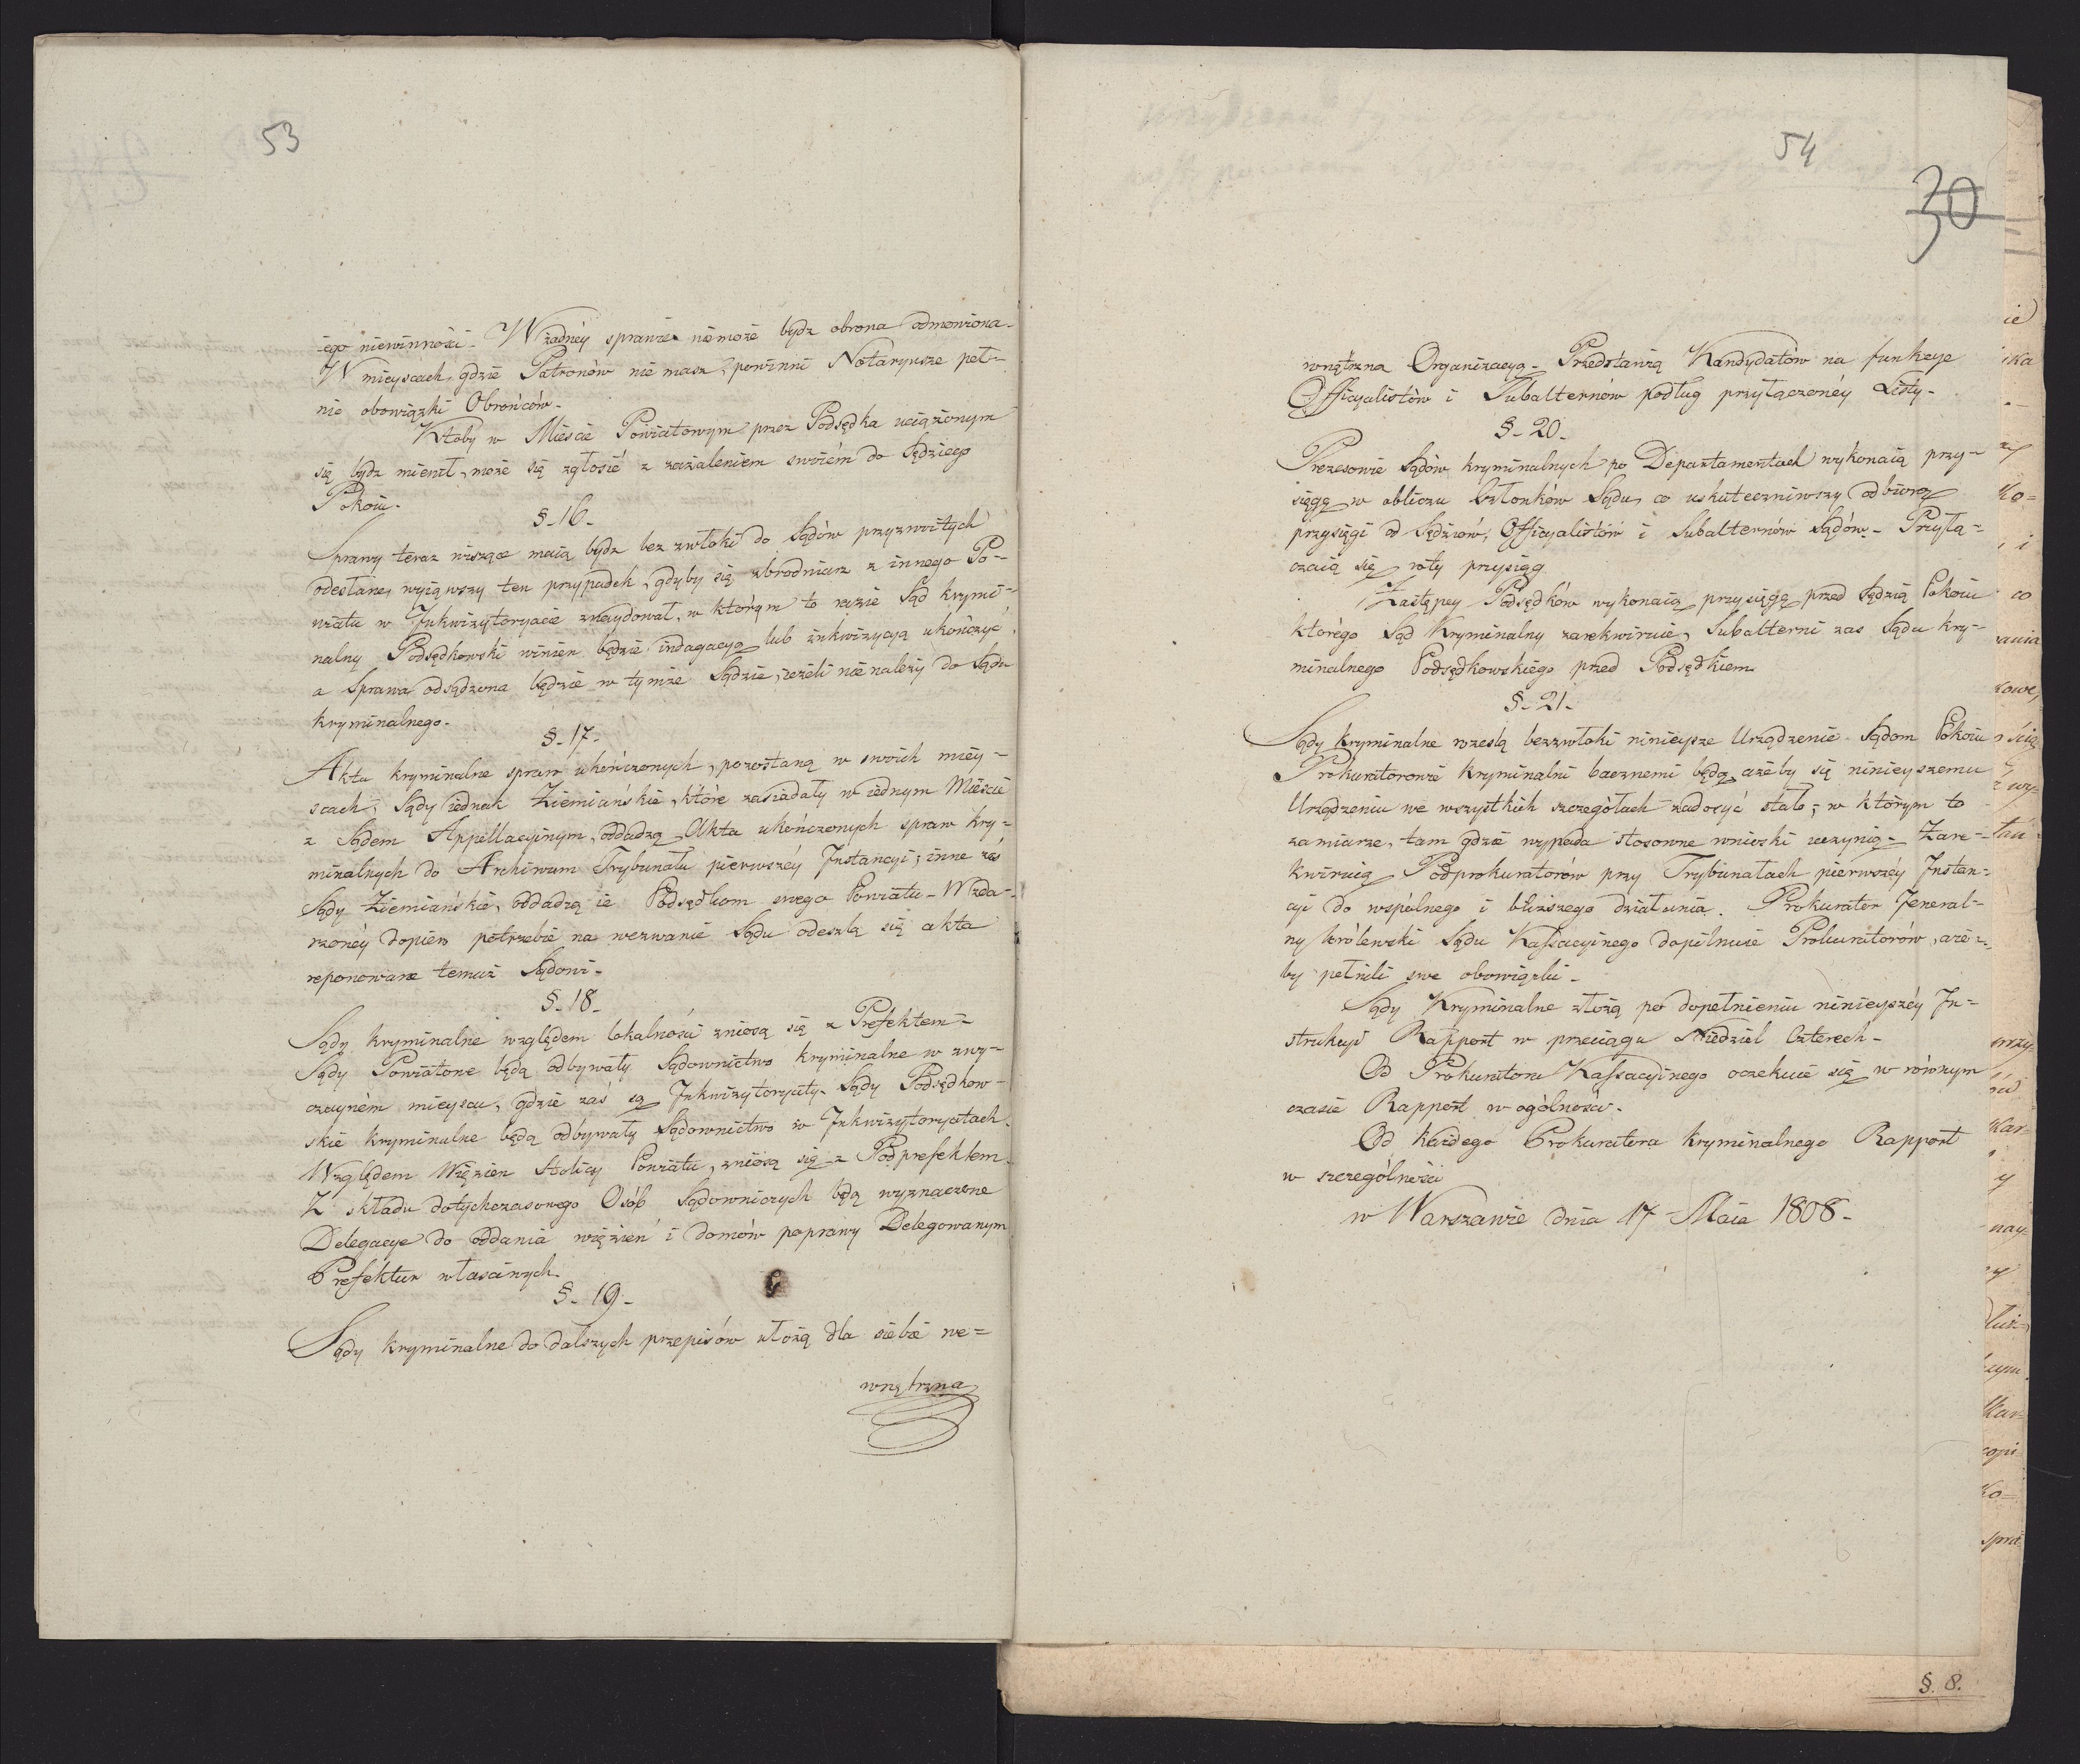 53
-iego niewinności. W żadnéy sprawie niemoże bydz obrona odmowiona.
W mieyscach, gdzie Patronów nie masz, powinni Notaryusze peł-
nić obowiązki Obrońców.
Ktoby w Mieście Powiatowym przez Podsędka uciążonym
się bydz mienił, może się zgłosić z zażaleniem swoiém do Sędziego
Pokoiu.
§-16-
Sprawy teraz wiszące maią bydz bez zwłoki do Sądów przyzwoitych
odesłane, wyiąwszy ten przypadek, gdyby się zbrodniarz z innego Po-
wiatu w Inkwizytoryacie znaydował, w którym to razie Sąd krymi-
nalny Podsędkowski winien będzie indagacyą lub inkwizycyą ukończyć
a Sprawa odsądzona będzie w tymże Sądzie, ieżeli nie należy do Sądu
kryminalnego.
§-17-
Akta kryminalne spraw ukończonych, pozostaną w swoich miey-
scach; Sądy iednak Ziemiańskie, które zasiadały w iednym Mieście
z Sądem Appellacyinym, oddadzą Akta ukończonych spraw kry-
minalnych do Archiwum Trybunału pierwszéy Instancyi; inne zaś
Sądy Ziemiańskie, oddadzą ie Podsędkom swego Powiatu. W zda-
rzonéy dopiero potrzebie na wezwanie Sądu odeszlą się akta
reponowane temuż Sądowi.
§-18-
Sądy kryminalne względem lokalności zniosą się z Prefektem-
Sądy Powiatowe będą odbywały Sądownictwo kryminalne w zwy-
czayném mieyscu, gdzie zaś są Inkwizytoryaty Sądy Podsędkow-
skie kryminalne będą odbywały Sądownictwo w Inkwizytoryatach.
Względem Więzien Stolicy Powiatu, zniosą się z Podprefektem.
Z składu dotychczasowego Osób Sądowniczych będą wyznaczone
Delegacye do oddania więzień i domów poprawy Delegowanym
Prefektur właściwych.
§-19-
Sądy kryminalne do dalszych przepisów ułożą dla siebie we=
wnętrzną
54
30
wnętrzną Organizacyą. Przedstawią Kandydatów na funkcye
Officyalistów i Subalternów podług przyłączonéy Listy-
§-20-
Prezesowie Sądów kryminalnych po Departamentach wykonaią przy-
sięgę w obliczu Członków Sądu, co uskuteczniwszy odbiorą
przysięgi od Sędziów, Officyalistów i Subalternów Sądów. Przyłą-
czaią się roty przysiąg
Zastępcy Podsędków wykonaią przysięgę przed Sędzią Pokoiu
którego Sąd Kryminalny zarekwiruie, Subalterni zaś Sądu kry-
minalnego Podsędkowskiego przed Podsędkiem
§-21-
Sądy kryminalne roześlą bezzwłoki ninieysze Urządzenie Sądom Pokoiu
Prokuratorowie kryminalni bacznemi będą, ażeby się ninieyszemu
Urządzeniu we wszystkich szczegółach zadosyć stało; w którym to
zamiarze, tam gdzie wypada stosowne wnioski uczynią. Zare-
kwiruią Podprokuratorów przy Trybunałach pierwszéy Instan-
cyi do wspólnego i bliższego działania. Prokurator Jeneral-
ny Królewski Sądu Kassacyinego dopilnuie Prokuratorów, aże-
by pełnili swe obowiązki-
Sądy Kryminalne złożą po dopełnieniu ninieyszéy In-
strukcyi Rapport w przeciągu Niedziel Czterech-
Od Prokuratora Kassacyinego oczekuie się w równym
czasie Rapport w ogólności.
Od każdego Prokuratora kryminalnego Rapport
w szczególności
w Warszawie dnia 17 Maia 1808-
§. 8.